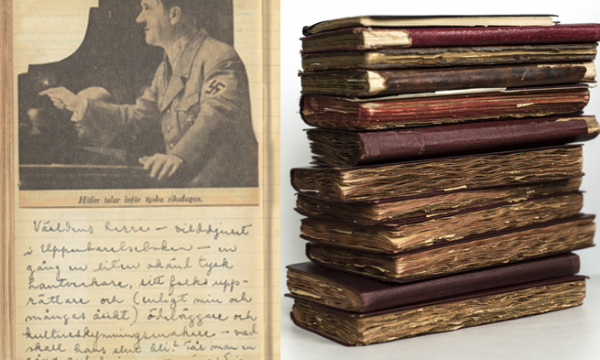 Hitler talar inför tyska riksdagen.
Världens herre — vilddjuret
i Uppenbarelseboken — en
gång en liten okänd tysk
hantverkare, sitt folks upp-
rättare och (enligt min och
mångas åsikt) ödeläggare och
kulturskymningsmakare — vad
skall hans slut bli? Får man en